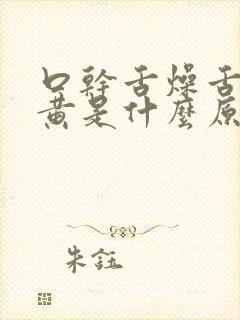 口幹舌燥舌
黃是什麼原
朱鈺